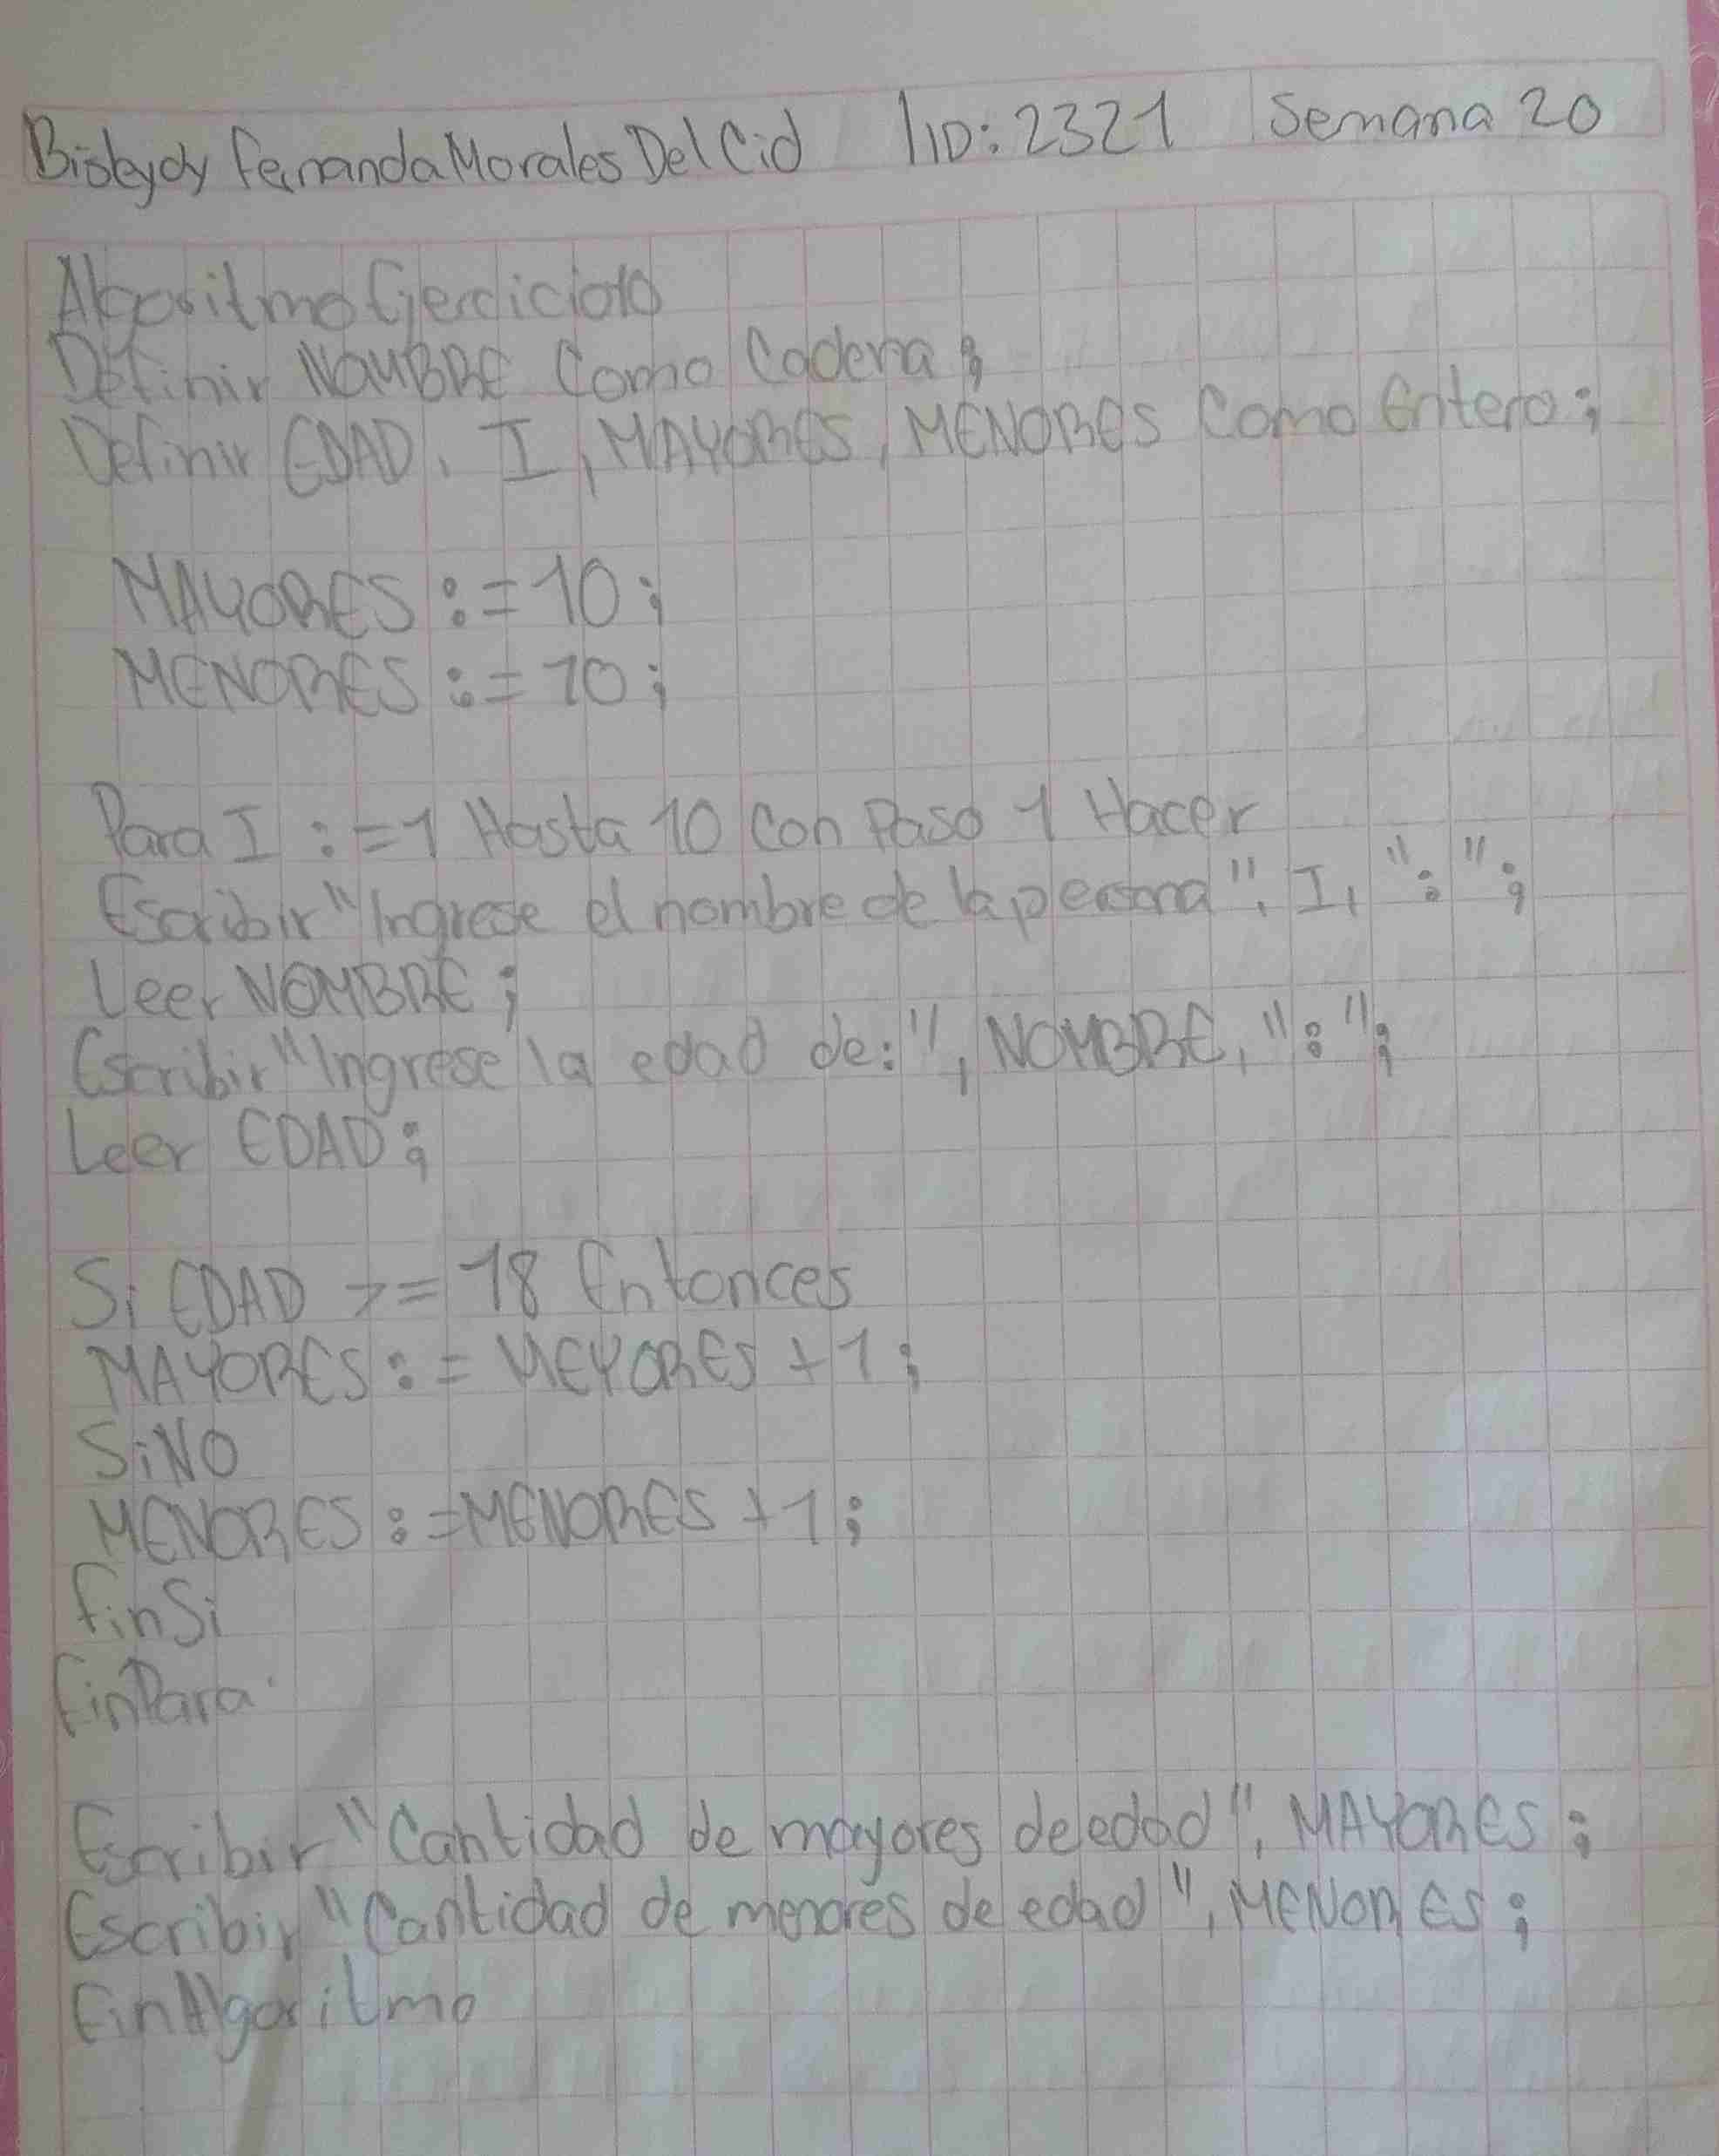 Bisleydy Fernanda Morales Del Cid |ID: 2321 Semana 20
Algoritmo Ejercicio10
Definir NOMBRE Como Cadena;
Definir EDAD, I, MAYORES, MENORES Como Entero;
MAYORES := 10;
MENORES := 10;
Para I := 1 Hasta 10 Con Paso 1 Hacer
Escribir "Ingrese el nombre de la persona", I, ":";
Leer NOMBRE;
Escribir "Ingrese la edad de:", NOMBRE, ":";
Leer EDAD;
Si EDAD >= 18 Entonces
MAYORES := MEYORES + 1;
SiNO
MENORES := MENORES + 1;
FinSi
FinPara
Escribir "Cantidad de mayores de edad", MAYORES;
Escribir "Cantidad de menores de edad", MENORES;
FinAlgoritmo